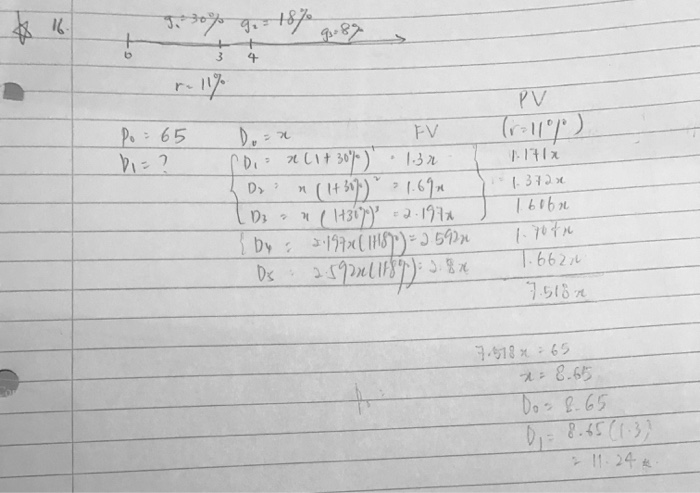 ☆ 16. g₁=30% g₂=18% g₃=8%
0 3 4
r=11%
PV
P₀ = 65 D₀ = x FV (r=11%)
D₁ = ? D₁ = x(1+30%)¹ = 1.3x 1.171x
D₂ = x(1+30%)² = 1.69x 1.372x
D₃ = x(1+30%)³ = 2.197x 1.606x
D₄ = 2.197x(1+18%) = 2.592x 1.707x
D₅ = 2.592x(1+8%) = 2.8x 1.662x
7.518x
7.518x = 65
x = 8.65
D₀ = 8.65
D₁ = 8.65(1.3)
= 11.24